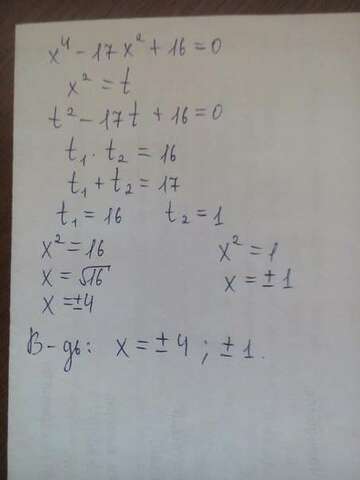 x⁴ - 17x² + 16 = 0
x² = t
t² - 17t + 16 = 0
t₁ · t₂ = 16
t₁ + t₂ = 17
t₁ = 16 t₂ = 1
x² = 16 x² = 1
x = √16 x = ± 1
x = ±4
В-дь: x = ± 4 ; ± 1.